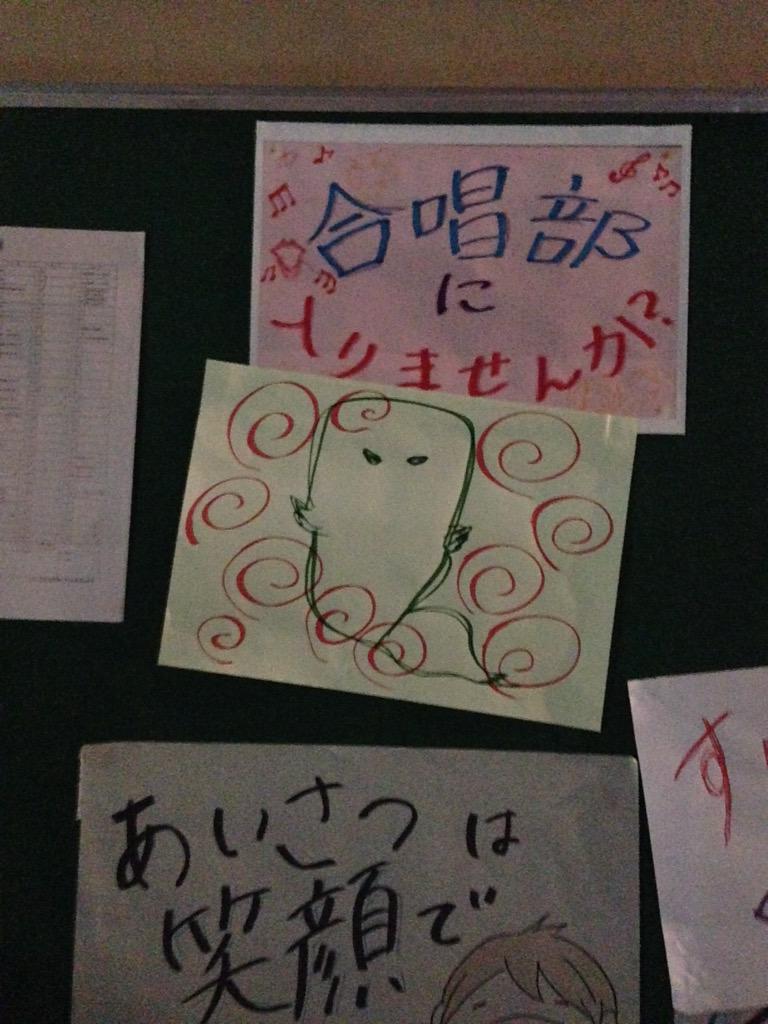 合唱部
に
入りませんか?
あいさつは
笑顔で
す